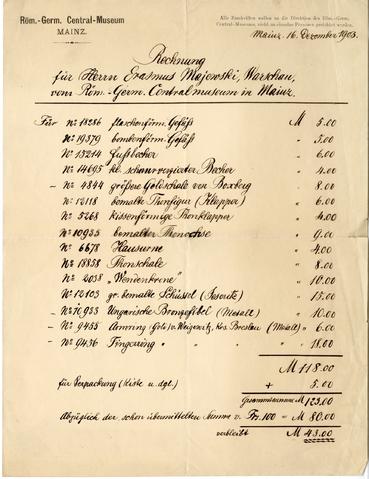 Röm.-Germ. Central-Museum
MAINZ.
Alle Zuschriften wolle man an die Direktion des Röm.-Germ.
Central-Museums, nicht an einzelne Personen gerichtet werden.
Mainz, 16. Dezember 1903.
Rechnung
für Herrn Erasmus Majewski, Warschau,
vom Röm.-Germ. Centralmuseum in Mainz.
Für No 18286 flaschenförm. Gefäß M 5.00
No 19379 bombenförm. Gefäß " 5.00
No 13214 Fußbecher " 6.00
No 14695 kl. schnurverzierter Becher " 4.00
– No 4844 größere Goldschale von Boxberg " 8.00
No 12118 bemalte Thonfigur (Klapper) " 6.00
No 5268 kissenförmige Thonklapper " 4.00
No 10955 bemalter " 9.00
No 6678 Hausurne " 4.00
No 18858 Thonschale " 8.00
No 2038 „Wendenkrone" " 10.00
No 12103 gr. bemalte Schüssel " 15.00
– No 10933 Ungarische Bronzefibel (Metall) " 10.00
– No 9455 Armring Breslau (Metall) " 6.00
– No 9436 Fingerring " " " 18.00
M 118.00
für Verpackung (Kiste u. dgl.) + 5.00
Gesammtsumme M 123.00
Abzüglich der schon übermittelten Summe v. Fr. 100 = M 80.00
verbleibt M 43.00